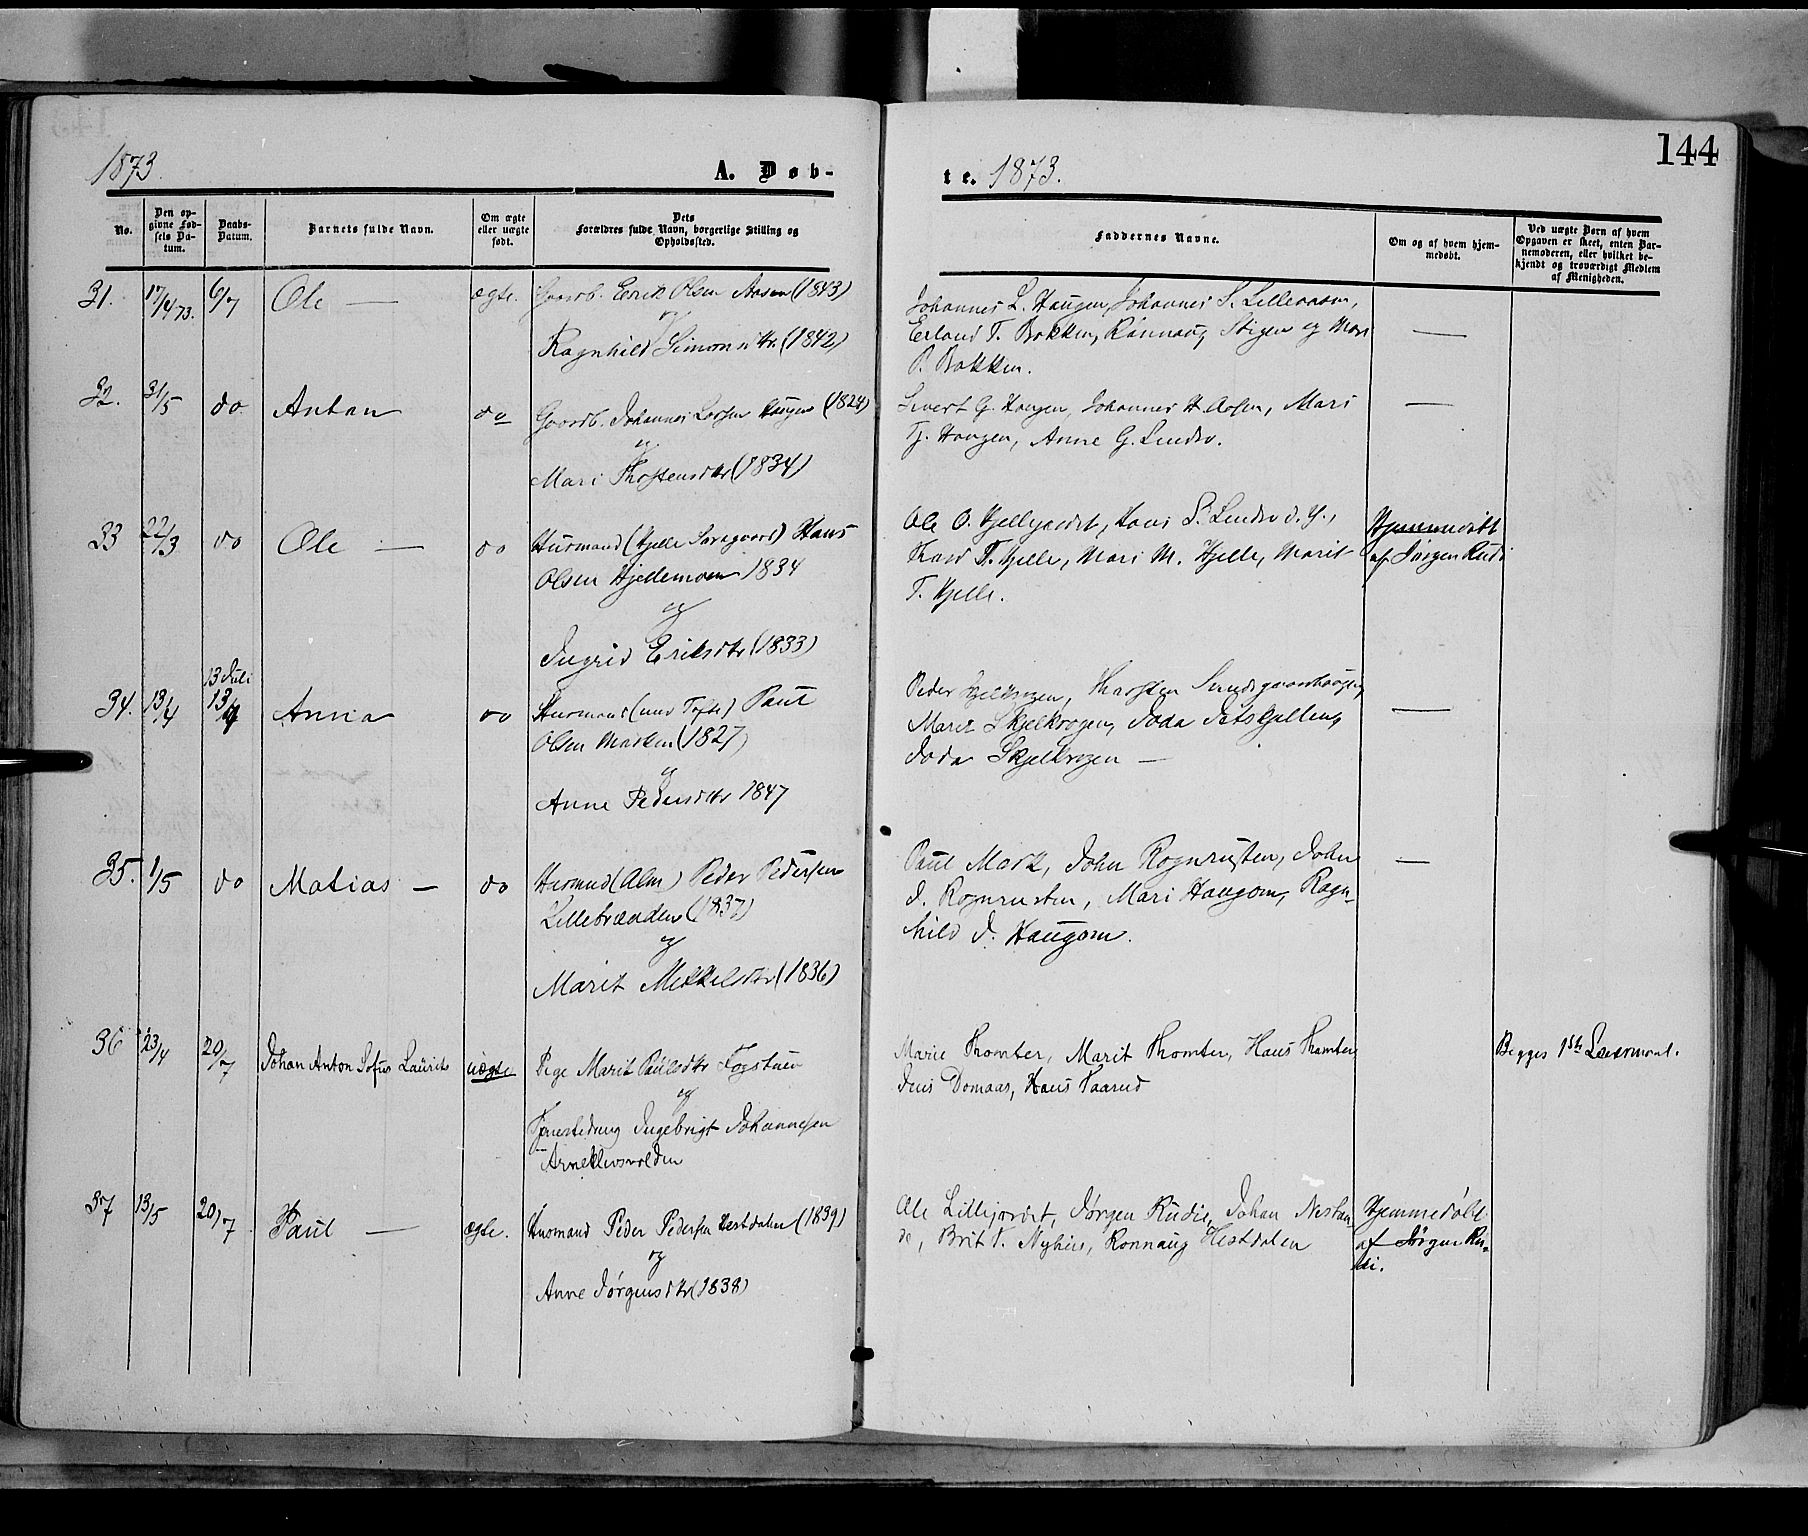 144
1873.
A. Døb-
te. 1873.
No.
Den op-
givne Fød-
sels Da-
tum.
Daabs-
Datum.
Barnets fulde Navn.
Om ægte
eller uægte
født.
Dets
Forældres fulde Navn, borgerlige Stilling og
Opholdssted.
Faddernes Navne.
Om og af hvem hjem-
medøbt.
Ved uægte Børn af hvem
Opgaven er skeet, enten Bar-
nemoderen, eller hvilket be-
kjendt og troværdigt Medlem
af Menigheden.
31. 17/4 73. 6/7 Ole — ægte. Gaardb. Erik Olsen Aasen (1843)
og
Ragnhild Simonsdtr. (1842)
Johannes L. Haugen, Johannes S. Lilleaasen,
Erland T. Bakken, Rønnaug Stigen og Mari
P. Bakken.
—
32. 31/5 do Anton do Gaardb. Johannes Larsen Haugen (1824)
og
Mari Thostensdtr (1834)
Sivert G. Haugen, Johannes H. Aasen, Mari
Tj. Haugen, Anne G. Lindsø.
—
33 22/3 do Ole — do Husmand (Hjelle Søregaard) Hans
Olsen Hjellemoen 1834
og
Ingrid Eriksdtr (1833)
Ole O. Hjellejordet, Hans S. Lindsø d. y.,
T. Hjelle, Mari M. Hjelle, Marit
T. Hjelle.
Hjemmedøbt
af Jørgen Rudi
34. 13/4 13 Juli Anna do Husmand Paul
Olsen Marken (1827)
og
Anne Pedersdtr 1847
Peder Skjelkrogen, Thosten
Marit Skjelkrogen,
Skjelkrogen —
—
35. 1/5 do Matias — do Husmand (Alm) Peder Pedersen
Lillebræaden (1837)
og
Marit Mikkelsdtr (1836)
Paul Mork, John Rognrusten, John
J. Rognrusten, Mari Haugom, Ragn-
hild J. Haugom.
—
36 23/4 20/7 Johan Anton Sofus Laurits uægte Pige Marit Paulsdtr Fogstuen
og
Tjenestedreng Ingebrigt Johannesen
Arneklevsvolden
Marie Thomter, Marit Thomter, Hans Thomter
Jens Domaas, Hans Taarud
Begges 1ste Leiermaal.
37 13/5 20/7 Paul — ægte. Husmand Peder Pedersen Hestdalen (1839)
og
Anne Jørgensdtr (1838)
Ole Lillejordet, Jørgen Rudi, Johan Nestan-
de, Brit T. Nyhus, Rønnaug Hestdalen
Hjemmedøbt
af Jørgen Ru-
di.